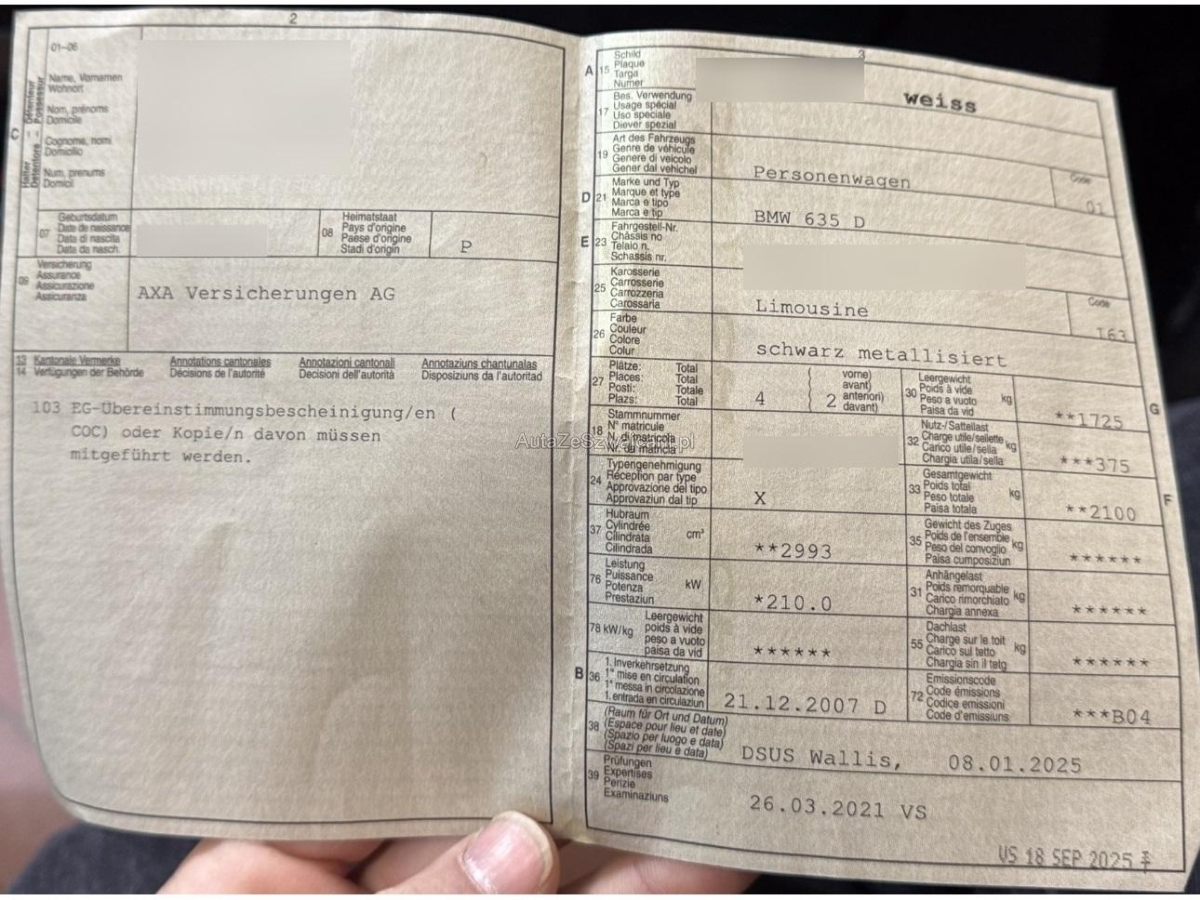 2
01–06
Name, Vornamen
Wohnort
Nom, prénoms
Domicile
Cognome, nomi
Domicilio
Num, prenums
Domicil
C
Halter Détenteur
Detentore Possessur
07
Geburtsdatum
Date de naissance
Data di nascita
Data da nasch.
08
Heimatstaat
Pays d'origine
Paese d'origine
Stadi d'origin
P
09
Versicherung
Assurance
Assicurazione
Assicuranza
AXA Versicherungen AG
13 Kantonale Vermerke Annotations cantonales Annotazioni cantonali Annotaziuns chantunalas
14 Verfügungen der Behörde Décisions de l'autorité Decisioni dell'autorità Disposiziuns da l'autoritad
103 EG-Übereinstimmungsbescheinigung/en (
COC) oder Kopie/n davon müssen
mitgeführt werden.
3
A 15
Schild
Plaque
Targa
Numer
weiss
17
Bes. Verwendung
Usage spécial
Uso speciale
Diever spezial
19
Art des Fahrzeugs
Genre de véhicule
Genere di veicolo
Gener dal vehichel
Personenwagen
Code
01
D 21
Marke und Typ
Marque et type
Marca e tipo
Marca e tip
BMW 635 D
E 23
Fahrgestell-Nr.
Châssis no
Telaio n.
Schassis nr.
25
Karosserie
Carrosserie
Carrozzeria
Carossaria
Limousine
Code
163
26
Farbe
Couleur
Colore
Colur
schwarz metallisiert
27
Plätze: Total
Places: Total
Posti: Totale
Plazs: Total
4
2
vorne)
avant)
anteriori)
davant)
30
Leergewicht
Poids à vide
Peso a vuoto
Paisa da vid
kg
**1725
G
18
Stammnummer
N° matricule
N. di matricola
Nr. da matricla
32
Nutz-/Sattellast
Charge utile/sellette
Carico utile/sella
Chargia utila/sella
kg
***375
24
Typengenehmigung
Réception par type
Approvazione del tipo
Approvaziun dal tip
X
33
Gesamtgewicht
Poids total
Peso totale
Paisa totala
kg
**2100
F
37
Hubraum
Cylindrée
Cilindrata
Cilindrada
cm³
**2993
35
Gewicht des Zuges
Poids de l'ensemble
Peso del convoglio
Paisa cumposiziun
kg
******
76
Leistung
Puissance
Potenza
Prestaziun
kW
*210.0
31
Anhängelast
Poids remorquable
Carico rimorchiato
Chargia annexa
kg
******
78 kW/kg
Leergewicht
poids à vide
peso a vuoto
paisa da vid
******
55
Dachlast
Charge sur le toit
Carico sul tetto
Chargia sin il tetg
kg
******
B 36
1. Inverkehrsetzung
1re mise en circulation
1a messa in circolazione
1. entrada en circulaziun
21.12.2007 D
72
Emissionscode
Code émissions
Codice emissioni
Code d'emissiuns
***B04
38
(Raum für Ort und Datum)
(Espace pour lieu et date)
(Spazio per luogo e data)
(Spazi per lieu e data)
DSUS Wallis, 08.01.2025
39
Prüfungen
Expertises
Perizie
Examinaziuns
26.03.2021 VS
VS 18 SEP 2025
AutaZeSzwajcarii.pl